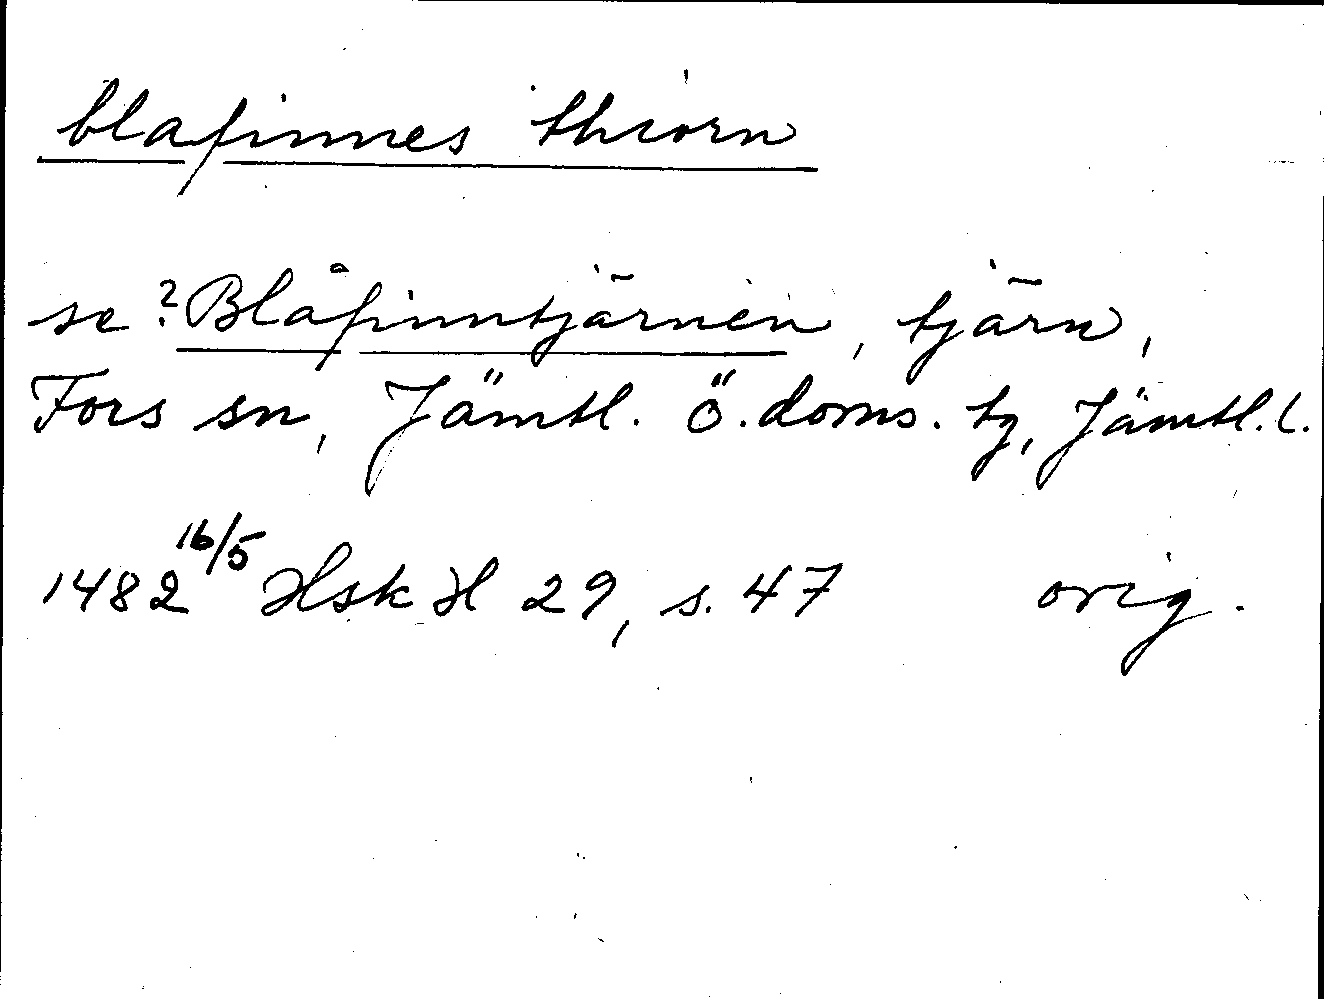 blafinnes thiorn
se? Blåfinntjärnen, tjärn,
Fors sn, Jämtl. ö. doms. tg, Jämtl. l.
1482 16/5 Hsk H 29, s. 47 orig.